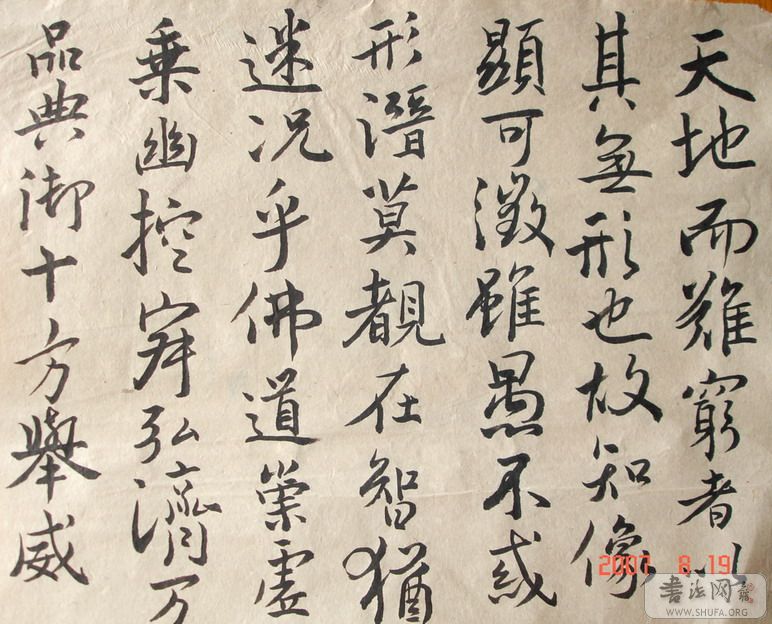 天地而難窮者以
其無形也故知像
顯可徵雖愚不惑
形潛莫覩在智猶
迷况乎佛道崇虛
乗幽控寂弘濟万
品典御十方舉威
2007 8 19
书法网
WWW.SHUFA.ORG